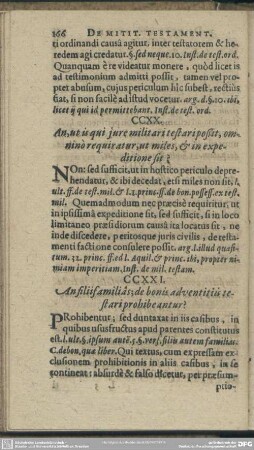 166 DE MITIT. TESTAMENT.
ti ordinandi causâ agitur. inter testatorem & he-
redem agi credatur. §. sed neque. 10. Inst. de test. ord.
Quanquam è re videatur monere, quòd licet is
ad testimonium admitti possit, tamen vel pro-
pter abusum, cujus periculum hîc subest, rectiùs
fiat, si non facilè ad istud vocetur. arg. d. §. 10. ibi,
licet ij qui id permittebant. Inst. de test. ord.
CCXX.
An, ut is qui jure militari testari possit, om-
ninò requiratur, ut miles, & in expe-
ditione sit?
NOn: sed sufficit, ut in hostico periculo depre-
hendatur, & ibi decedat, etsi miles non sit. l.
ult. ff. de test. mil. & l. 1. princ. ff. de bon. possess. ex test.
mil. Quemadmodum nec præcisè requiritur, ut
in ipsissimâ expeditione sit, sed sufficit, si in loco
limitaneo præsidiorum causâ ita locatus sit, ne
inde discedere, peritosque juris civilis, de testa-
menti factione consulere possit. arg. l. illud quæsi-
tum. 32. princ. ff. ad l. Aquil. & princ. ibi, propter ni-
miam imperitiam, Inst. de mil. testam.
CCXXI.
An filiifamiliâs, de bonis adventitiis te-
stari prohibeantur?
PRohibentur; sed duntaxat in iis casibus, in
quibus ususfructus apud parentes constitutus
est. l. ult. §. ipsum autē. 5. §. vers. filiis autem familias.
C. de bon. quæ liber. Qui textus, cum expressam ex-
clusionem prohibitionis in aliis casibus, in se
contineat; absurdè & falso dicetur, per præsum-
ptio-